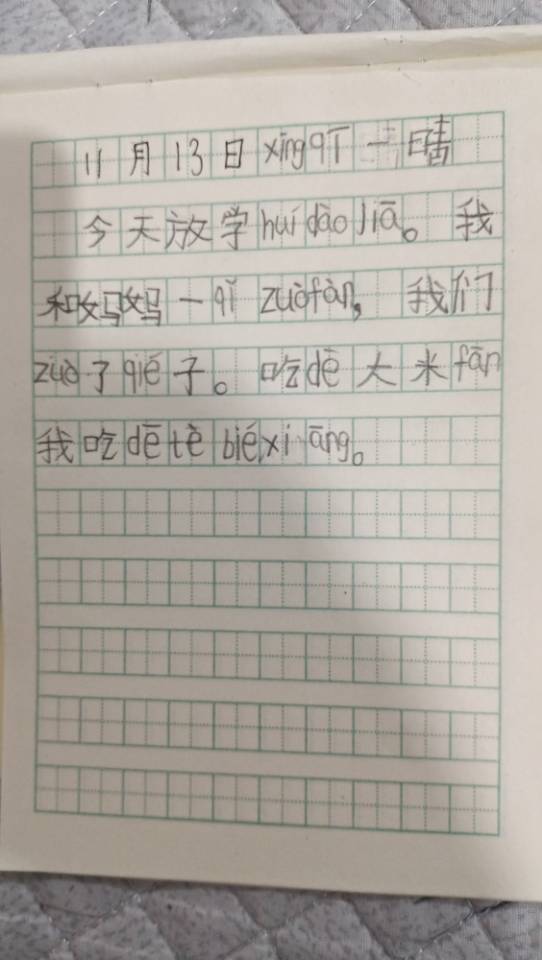 11月13日xīngqī一晴
今天放学huídàojiā。我
和妈妈一qǐ zuòfàn，我们
zuò了qié子。吃dē大米fān
我吃dētèbiéxiāng。